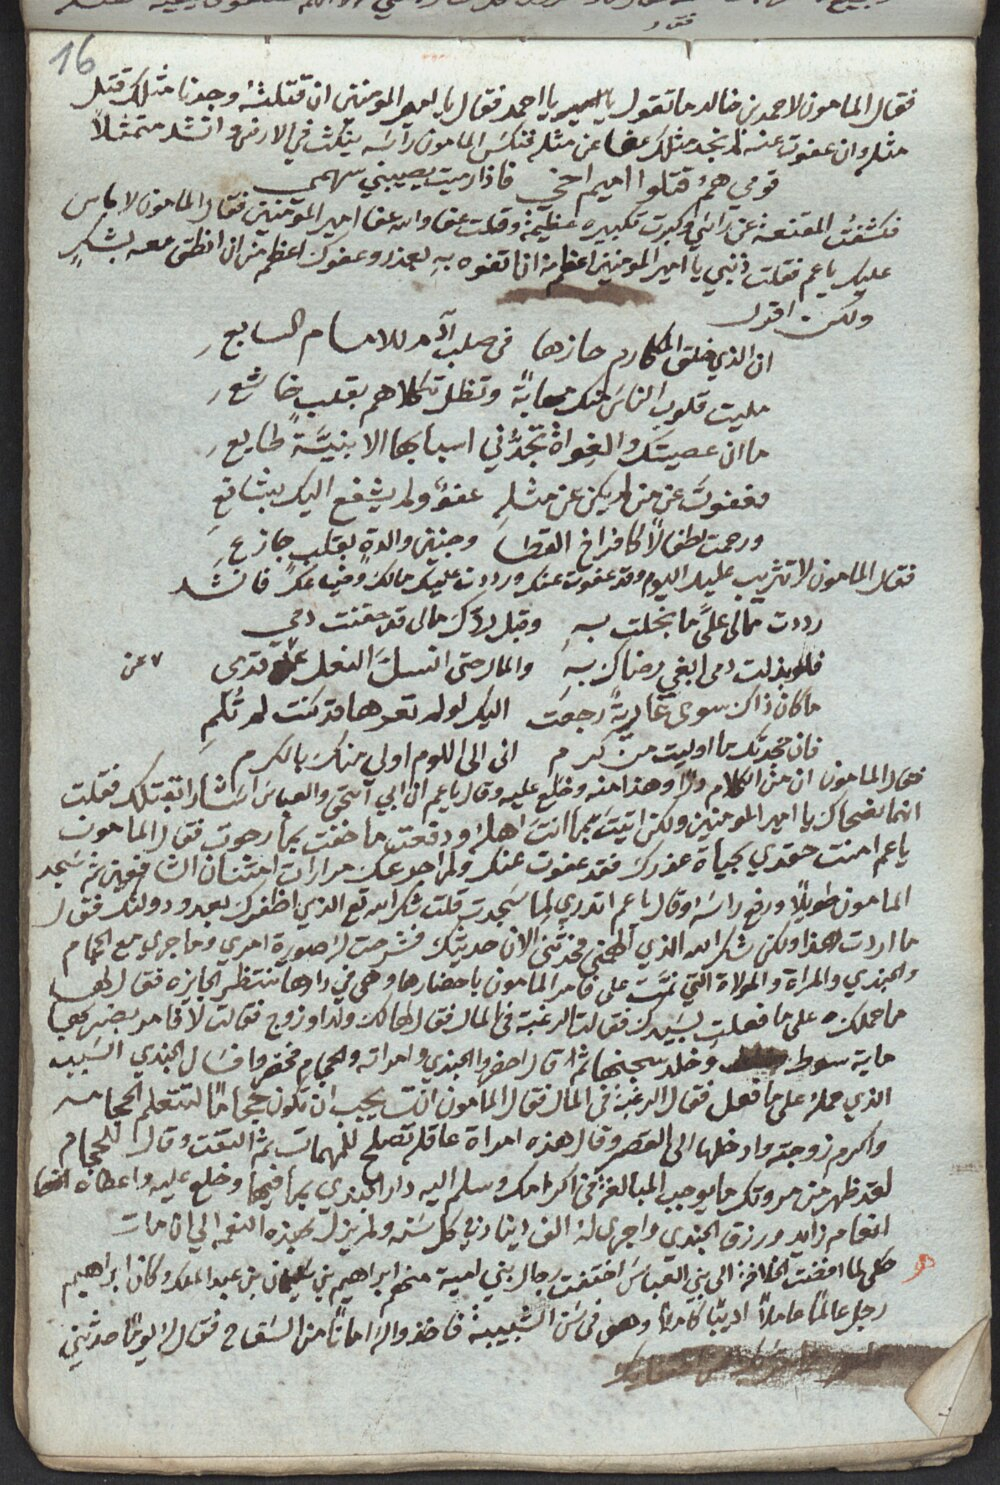 16
فقال المامون لاحمد بن خالد ما تقول يا احمد فقال يا امير المومنين ان قتلته وجدنا مثلك قتل
مثله وان عفوت عنه لم نجد مثلك عفا عن مثله فنكس المامون رأسه ينكث في الارض وانشد متمثلاً
قومي همُ قتلوا اميم اخي فاذا رميت يصيبني سهمي
فكشفت المقنعة عن رائسي وكبرت تكبيره عظيمة وقلت عفا والله عفا امير المومنين فقال المامون لا باس
عليك يا عم فقلت ذنبي يا امير المومنين اعظم من ان اتفوه به بعذر وعفوك اعظم من ان انطق معه بشكرٍ
ولكن اقول
ان الذي خلق المكارم حازها في صلب آدم للامام السابع
مليت قلوب الناس منك مهابةً وتظل تكلاهم بقلب خاشع
ما ان عصيتك والغواة تجدُّني اسبابها الا بنيَّة طايع
فعفوتَ عن من لم يكن عن مثلهِ عفوٌ ولم يشفع اليك بشافعِ
ورحمت اطفالاً كافراخ القطا وحنين والدةٍ بقلبٍ جازعِ
فقال المامون لا تثريب عليك اليوم وقد عفوت عنك ورددت عليك مالك وضياعك فانشد
رددت مالي عليَّ ما بخلت بهِ وقبل ردّك مالي قد حقنت دمي
فلو بذلت دمي ابغي رضاك بهِ والمال حتى اسلَّ النعل قدمي عن
ما كان ذاك سوى عاريةً رجعت اليك لو لم تعرها قد كنت لم تُلمِ
فان جحدتك ما اوليت من كرم اني الى اللوم اولي منك بالكرم
فقال المامون ان من الكلام درّا وهذا منه وخلع عليه وقال يا عم ان ابي اسحق والعباس اشارا بقتلك فقلت
انهما نصحاك يا امير المومنين ولكن اتيت بما انت اهله ودفعت ما خفت بما رجوت فقال المامون
يا عم امنت حقدي بحياة عذرك فقد عفوت عنك ولم اجرعك مرارات امتنان الشافعين ثم سجد
المامون طويلًا ورفع راسه وقال يا عم اتدري لِما سجدت قلت شكر الله تع الذي اظفرك بعدو دولتك فقال
ما اردت هذا ولكن شكر الله الذي الهمني فحدثني الان حديثك فشرحت له صورة امري وما جرى مع الحجام
والجندي والمراة والمولاة التي نمَّت علي فامر المامون باحضارها وهي في دارها تنتظر الجايزه فقال لها
ما حملك على ما فعلتِ بسيدك فقالت الرغبة في المال فقال لها الك ولد او زوج فقالت لا فامر بضربها
ماية سوط وخلد سجنها ثم قال احضروا الجندي وامراته والحجام فحضروا فسال الجندي السبب
الذي حمله على ما فعل فقال الرغبة في المال فقال المامون انت يجب ان تكون حجّامًا لتتعلم الحجامه
واكرم زوجته وادخلها الى القصر وقال هذه امراة عاقله تصلح للمهمات ثم التفت وقال للحجام
لقد ظهر من مروتك ما يوجب المبالغة في اكرامك وسلم اليه دار الجندي بما فيها وخلع عليه واعطاه
انعام زايد ورزق الجندي واجرى له الف دينار في كل سنه ولم يزل بهذه النعمه الي ان مات
حكي لما افضت الخلافة الى بني العباس اختفت رجال بني امية منهم ابراهيم بن سليمان بن عبد الملك وكان ابراهيم
رجل عالماً عاملاً اديبًا كاملاً وهو في سن الشبيبة فاخذوا له امانًا من السفاح فقال له يومًا حدثني